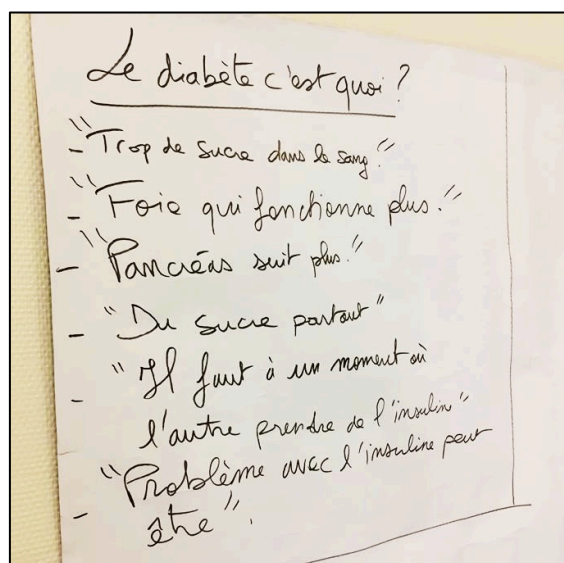 Le diabète c'est quoi ?
- "Trop de sucre dans le sang."
- "Foie qui fonctionne plus."
- "Pancréas suit plus."
- "Du sucre partout"
- "Il faut à un moment où
l'autre prendre de l'insulin"
- "Problème avec l'insuline peut
être".